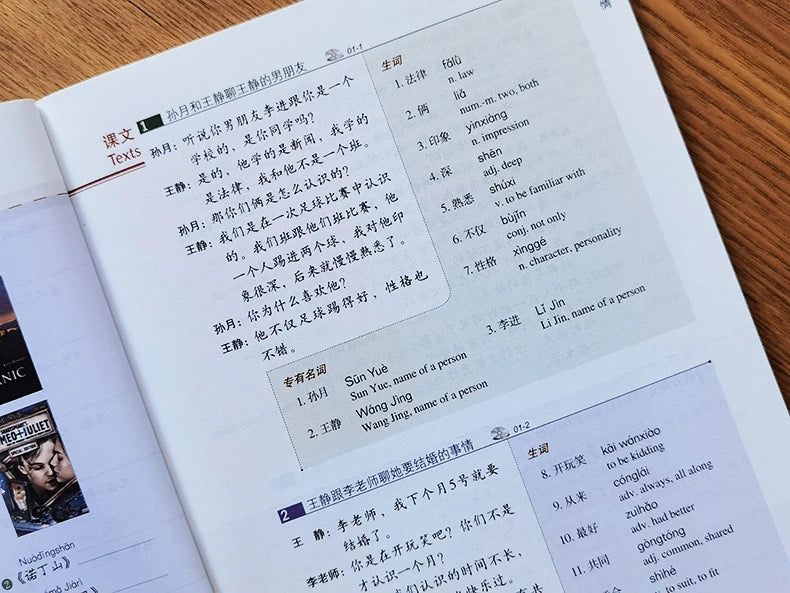 课文
Texts
1 孙月和王静聊王静的男朋友 01-1
孙月：听说你男朋友李进跟你是一个
学校的，是你同学吗？
王静：是的，他学的是新闻，我学的
是法律，我和他不是一个班。
孙月：那你们俩是怎么认识的？
王静：我们是在一次足球比赛中认识
的。我们班跟他们班比赛，他
一个人踢进两个球，我对他印
象很深，后来就慢慢熟悉了。
孙月：你为什么喜欢他？
王静：他不仅足球踢得好，性格也
不错。
生词
fǎlǜ
1. 法律 n. law
liǎ
2. 俩 num.-m. two, both
yìnxiàng
3. 印象 n. impression
shēn
4. 深 adj. deep
shúxi
5. 熟悉 v. to be familiar with
bùjǐn
6. 不仅 conj. not only
xìnggé
7. 性格 n. character, personality
专有名词
Sūn Yuè
1. 孙月 Sun Yue, name of a person
Wáng Jìng
2. 王静 Wang Jing, name of a person
Lǐ Jìn
3. 李进 Li Jin, name of a person
2 王静跟李老师聊她要结婚的事情 01-2
王 静：李老师，我下个月5号就要
结婚了。
李老师：你是在开玩笑吧？你们不是
才认识一个月？
我们认识的时间不长，
快乐过。
生词
kāi wánxiào
8. 开玩笑 to be kidding
cónglái
9. 从来 adv. always, all along
zuìhǎo
10. 最好 adv. had better
gòngtóng
11. 共同 adj. common, shared
shìhé
to suit, to fit
NIC
MEO+JULIET
SPECIAL EDITION
Nuòdīngshān
2 《诺丁山》
Jiārì